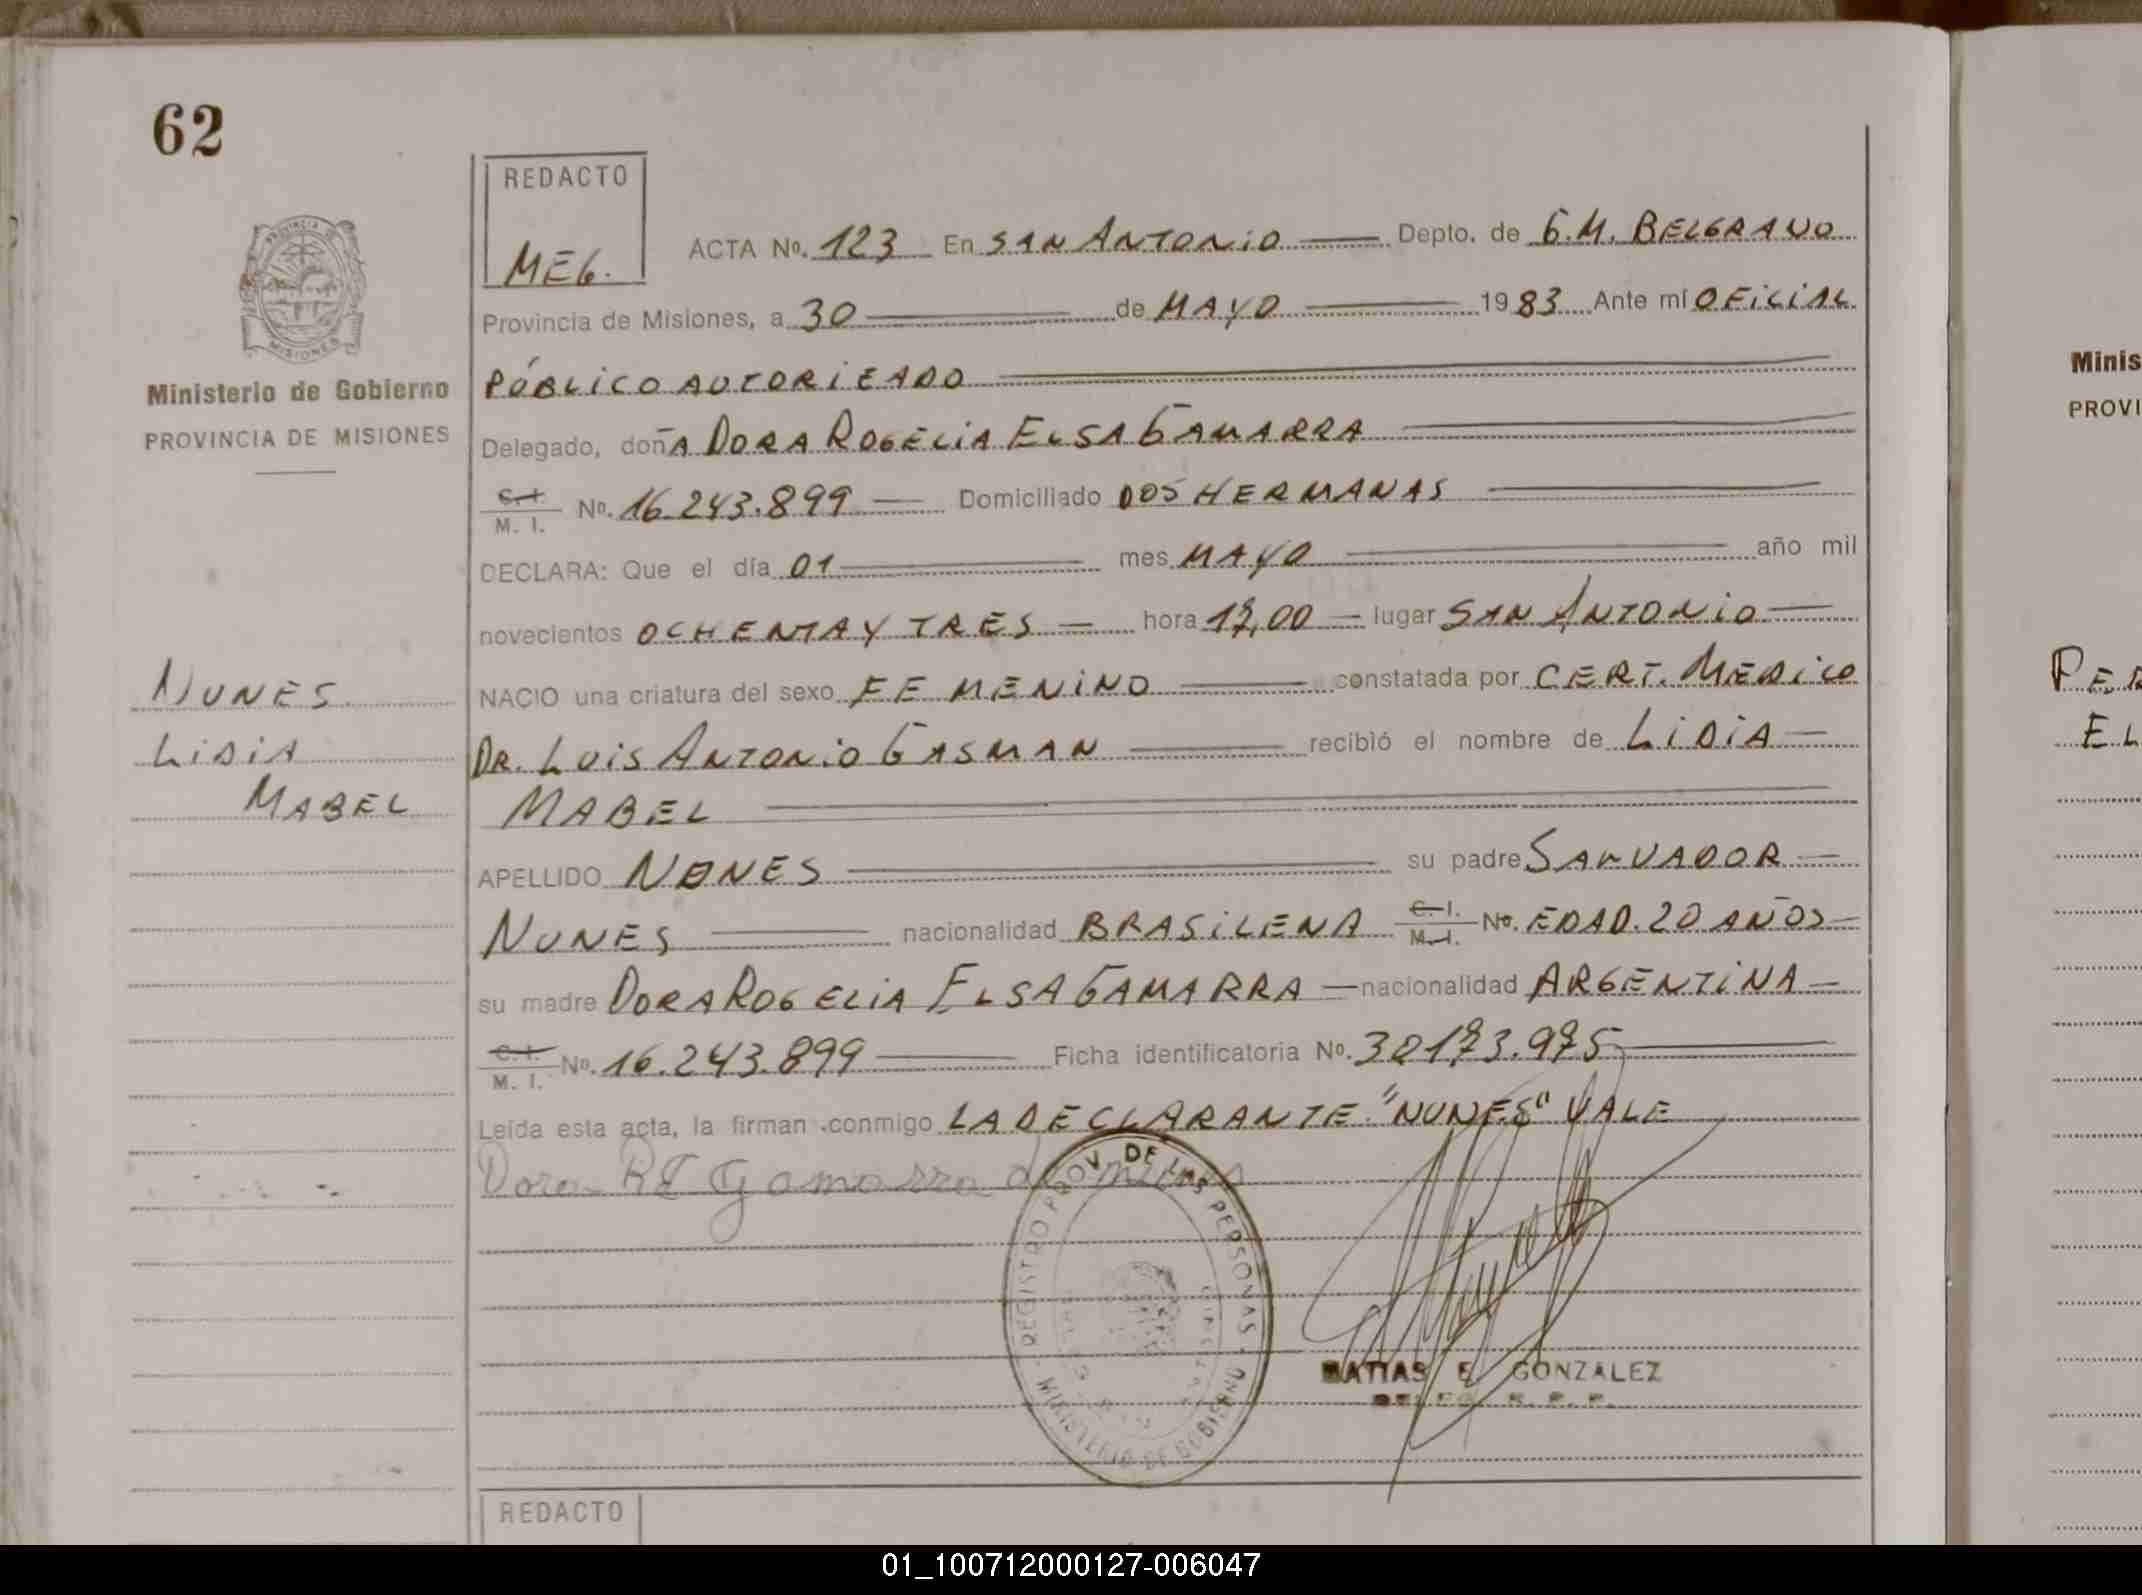 62
REDACTO
MEG.
ACTA Nº. 123 En SAN ANTONIO Depto. de G.M. BELGRANO
Provincia de Misiones, a 30 de MAYO 1983 Ante mí OFICIAL
PÚBLICO AUTORIZADO
Delegado, doñA DORA ROGELIA ELSA GAMARRA
C. I.
M. I. Nº. 16.243.899 Domiciliado DOS HERMANAS
DECLARA: Que el día 01 mes MAYO año mil
novecientos OCHENTA Y TRES hora 17,00 lugar SAN ANTONIO
NACIO una criatura del sexo FEMENINO constatada por CERT. MEDICO
DR. LUIS ANTONIO GASMAN recibió el nombre de LIDIA
MABEL
APELLIDO NUNES su padre SALVADOR
NUNES nacionalidad BRASILENA C. I.
M. I. Nº. EDAD. 20 AÑOS
su madre DORA ROGELIA ELSA GAMARRA nacionalidad ARGENTINA
C. I.
M. I. Nº. 16.243.899 Ficha identificatoria Nº. 30173.975
Leída esta acta, la firman conmigo LA DECLARANTE "NUNES" VALE
Dora R E Gamarra de nunes
REGISTRO PROV. DE LAS PERSONAS
MINISTERIO DE GOBIERNO
MATIAS E. GONZALEZ
DELEG. R. P. P.
PROVINCIA DE
MISIONES
Ministerio de Gobierno
PROVINCIA DE MISIONES
NUNES
LIDIA
MABEL
REDACTO
Minis
PROVI
PER
EL
01_100712000127-006047